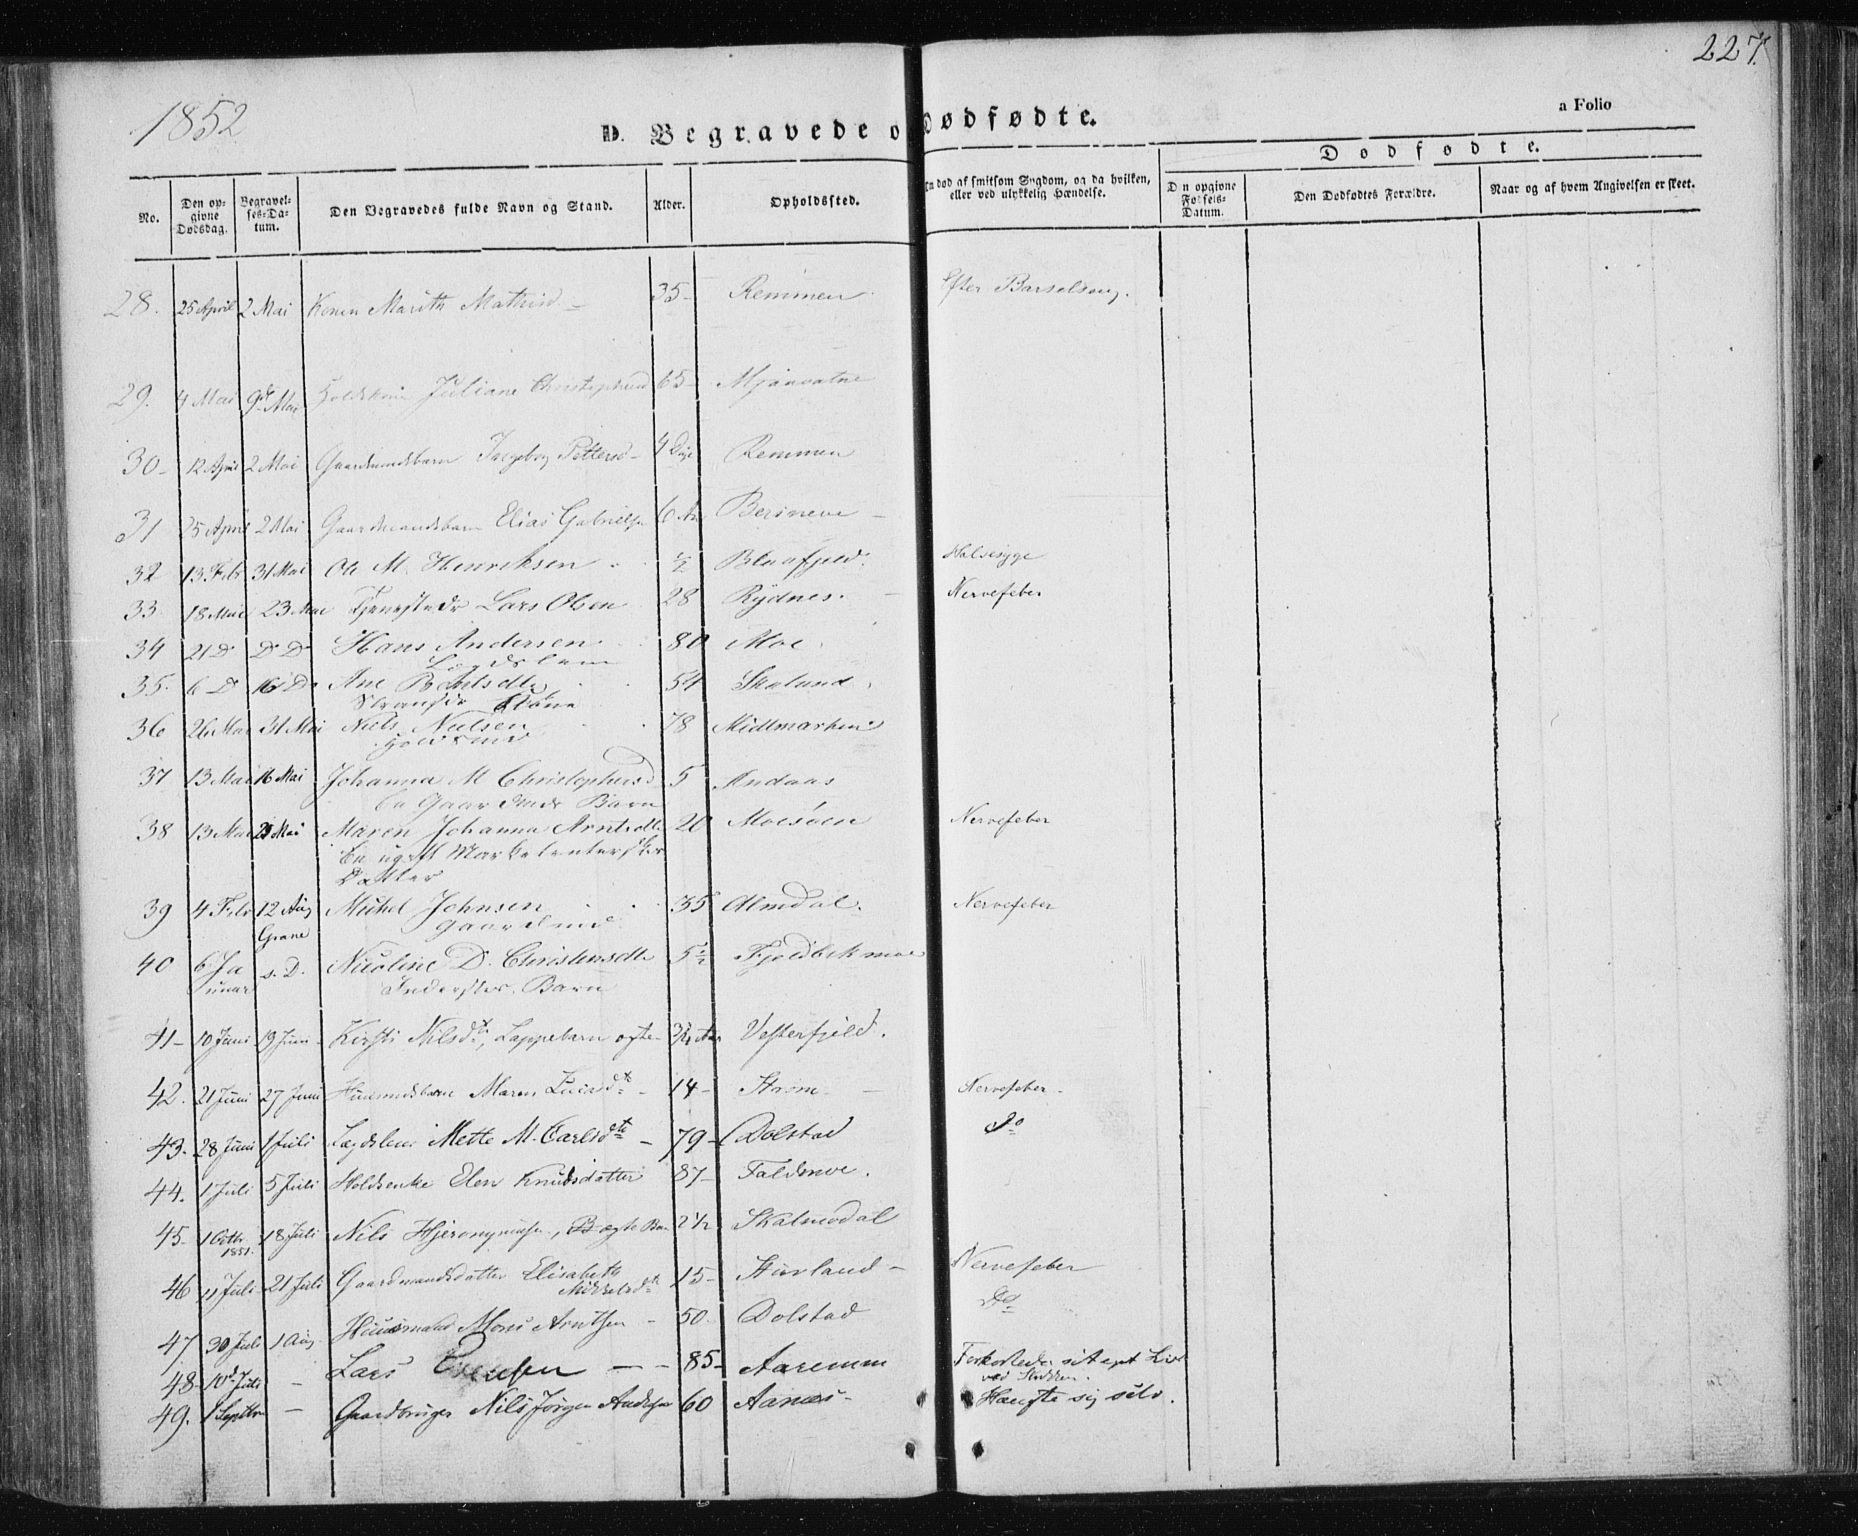 227.
1852
a Folio
D. Begravede o Dødfødte.
Dødfødte.
No. Den opgivne Dødsdag. Begravelses-Datum. Den Begravedes fulde Navn og Stand. Alder. Opholdssted. død af smitsom Sygdom, og da hvilken, eller ved ulykkelig Hændelse. Den opgivne Fødsels-Datum. Den Dødfødtes Forældre. Naar og af hvem Angivelsen er skeet.
28. 25 April 2 Mai Konen Marith Mathisd 35 Remmen Efter Barselseng.
29. 4 Mai 9de Mai Juliane Christophersd 65 Mjaavatne
30 12 April 2 Mai Gaardmandsbarn Ingeborg Pettersd 4 Dage Remmen
31 25 April 2 Mai Gaardmandsbarn Elias Gabrielsn 6 Aar
32 13 Febr 31 Mai Ole M. Henriksen ½ Blaafjeld. Halsesyge
33 18 Mai 23 Mai Lars Olsen 28 Rydnes. Nervefeber
34 21 D D D Hans Andersen 80 Moe
Lægdslem
35. 6 D 16 D Ane 54 Skalund
36 26 Mai 31 Mai Niels Nielsen 78 Midtmarken
37 13 Mai 16 Mai Johanna M Christophersd 5 Andaas
En Gaardmds Barn
38 13 Mai Mai Maren Johanna Arntsdtr 20 Moesøen Nervefeber
En ugift
Datter
39 4 Febr 12 Aug Mikel Johnsen 35 Almdal. Nervefeber
Grane Gaardmd
40 6 Januar s. D. Nicoline D. Christensdtr 5½ Fjeldbekmoe
Inderstes Barn
41 10 Juni 19 Juni Kirsti Nilsdt, Lappebarn ogte Vesterfjeld.
42. 21 Juni 27 Juni Huusmdsbarn Maren 14 Strøm Nervefeber
43. 28 Juni 1 Juli Lægdslem Mette M. Carlsdtr 79 Dolstad Do
44. 1 Juli 5 Juli Holdsenke Elen Knudsdatter 87 Faldmoe.
45. 1 Octbr 1851. 18 Juli Nils Hjeronymussn, Ægte Barn 2½ Skalmodal
46 11 Juli 21 Juli Gaardmandsdatter Elisabeth 15 Nervefeber
Mikkelsdtr
47 30 Juli 1 Aug Huusmand Mons Arntsen 50 Dolstad Do
48 10de Juli – Lars 85 Aaremme Forkortede sit eget Liv
49. 1 Septbr – Gaardbruger Nils Jørgen Andersen 60 Aanes Hængte sig selv.